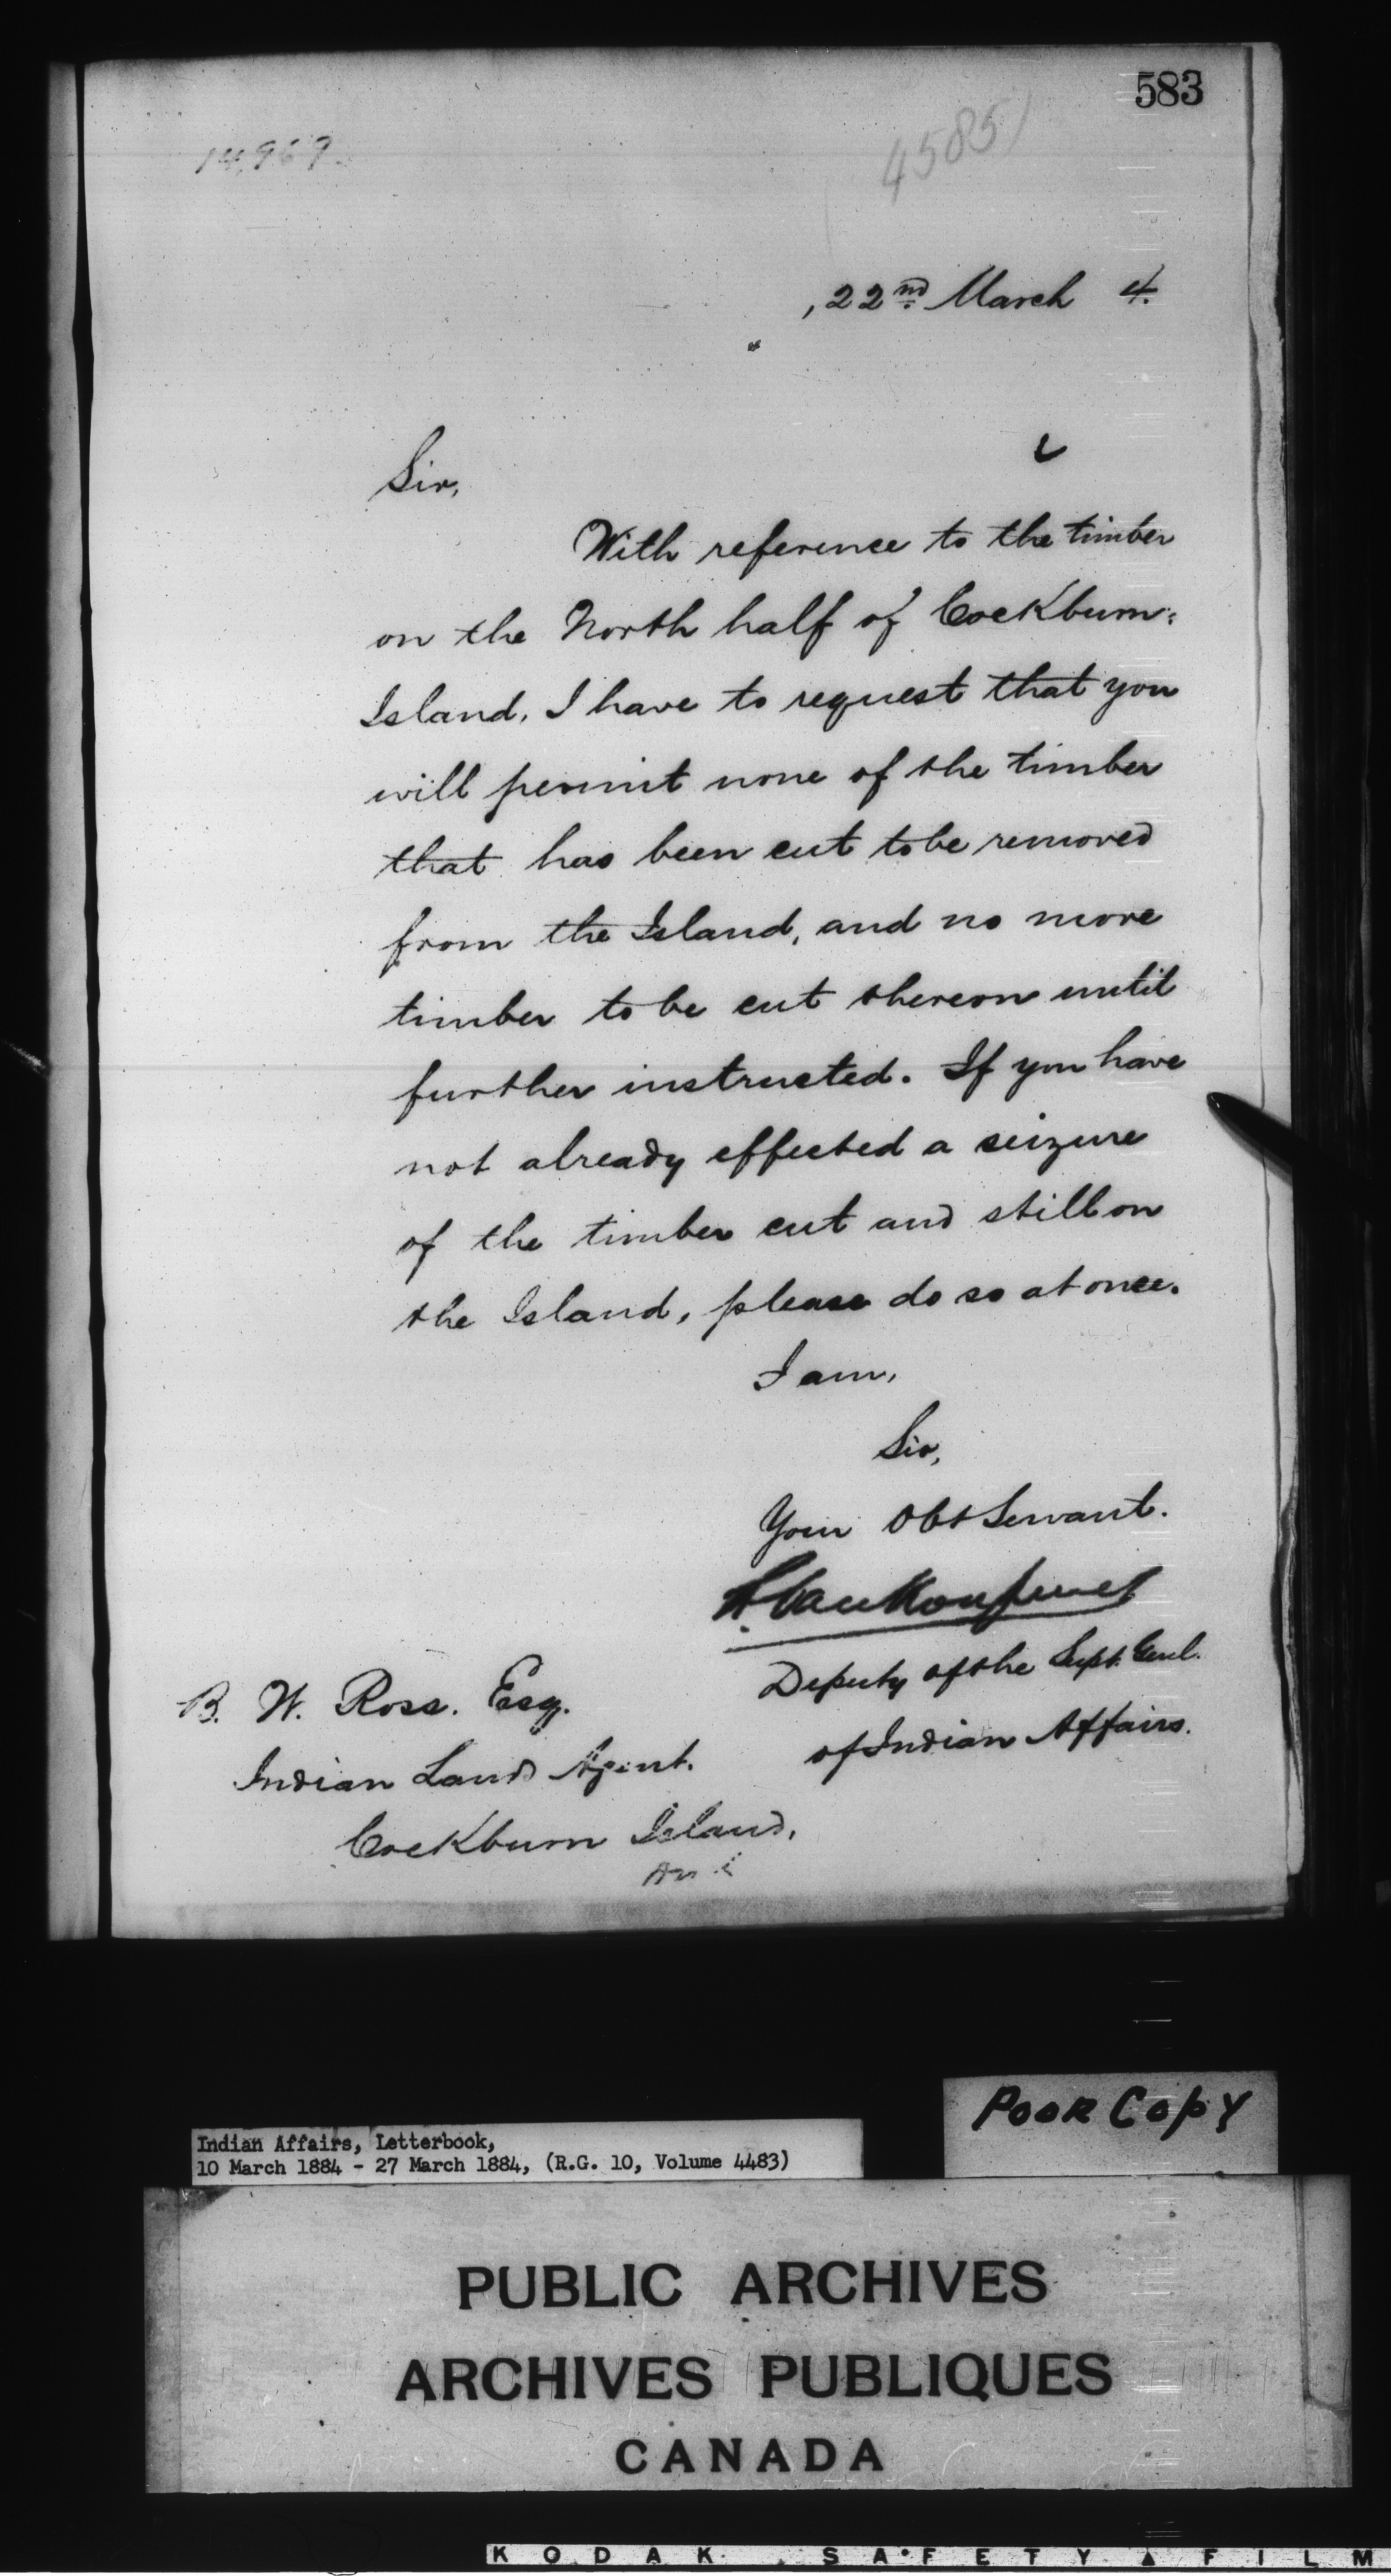 583
14,969
45851
, 22nd March 4.
Sir,
With reference to the timber
on the North half of Cockburn
Island, I have to request that you
will permit none of the timber
that has been cut to be removed
from the Island, and no more
timber to be cut thereon until
further instructed. If you have
not already effected a seizure
of the timber cut and still on
the Island, please do so at once.
I am,
Sir,
Your Obt Servant.
L. VanKoughnet
Deputy of the Supt. Genl.
of Indian Affairs.
B. W. Ross. Esq.
Indian Land Agent.
Cockburn Island,
Poor Copy
Indian Affairs, Letterbook,
10 March 1884 - 27 March 1884, (R.G. 10, Volume 4483)
PUBLIC ARCHIVES
ARCHIVES PUBLIQUES
CANADA
KODAK SAFETY ▲ FILM